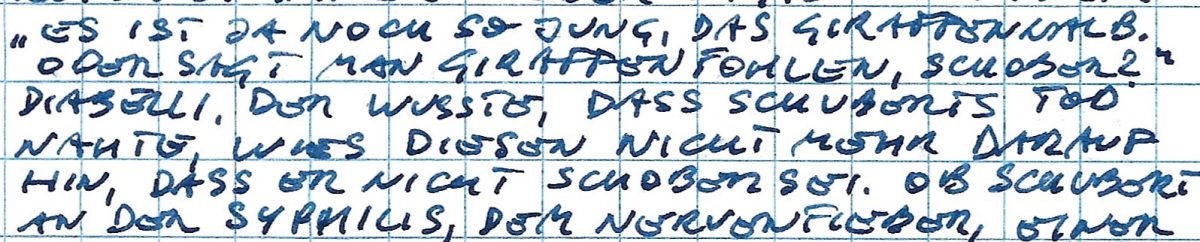 „ES IST JA NOCH SO JUNG, DAS GIRAFFENKALB.
ODER SAGT MAN GIRAFFENFOHLEN, SCHOBER?“
DIABELLI, DER WUSSTE, DASS SCHUBERTS TOD
NAHTE, WIES DIESEN NICHT MEHR DARAUF
HIN, DASS ER NICHT SCHOBER SEI. OB SCHUBERT
AN DER SYPHILIS, DEM NERVENFIEBER, EINER